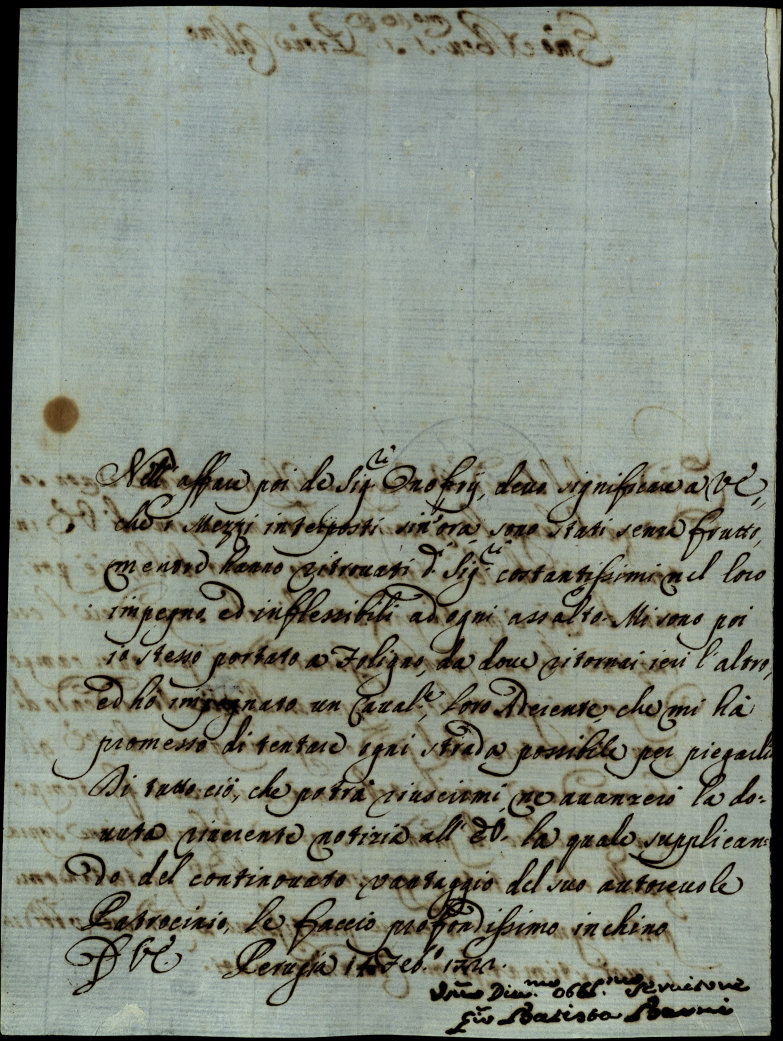 Nell' affare poi de Sig.ri Onofrij, devo significare a VE.,
che i Mezzi interposti sin'ora, sono stati senza frutto,
mentre hanno ritrovati d.i Sig.ri costantissimi nel loro
impegno, ed inflessibili ad ogni assalto. Mi sono poi
io stesso portato a Foligno, da dove ritornai ieri l'altro,
ed hò impegnato un Caval.e, loro Aderente, che mi hà
promesso di tentare ogni strada possibile per piegarli
Di tutto ciò, che potrà riuscirmi, ne avanzerò la do-
vuta riverente notizia all' EV. la quale supplican-
do del continovato vantaggio del suo autorevole
Patrocinio, le faccio profondissimo inchino
D VE Perugia 14 Feb.o
Dev.mo Obbl.mo Servitore
Gio Batista